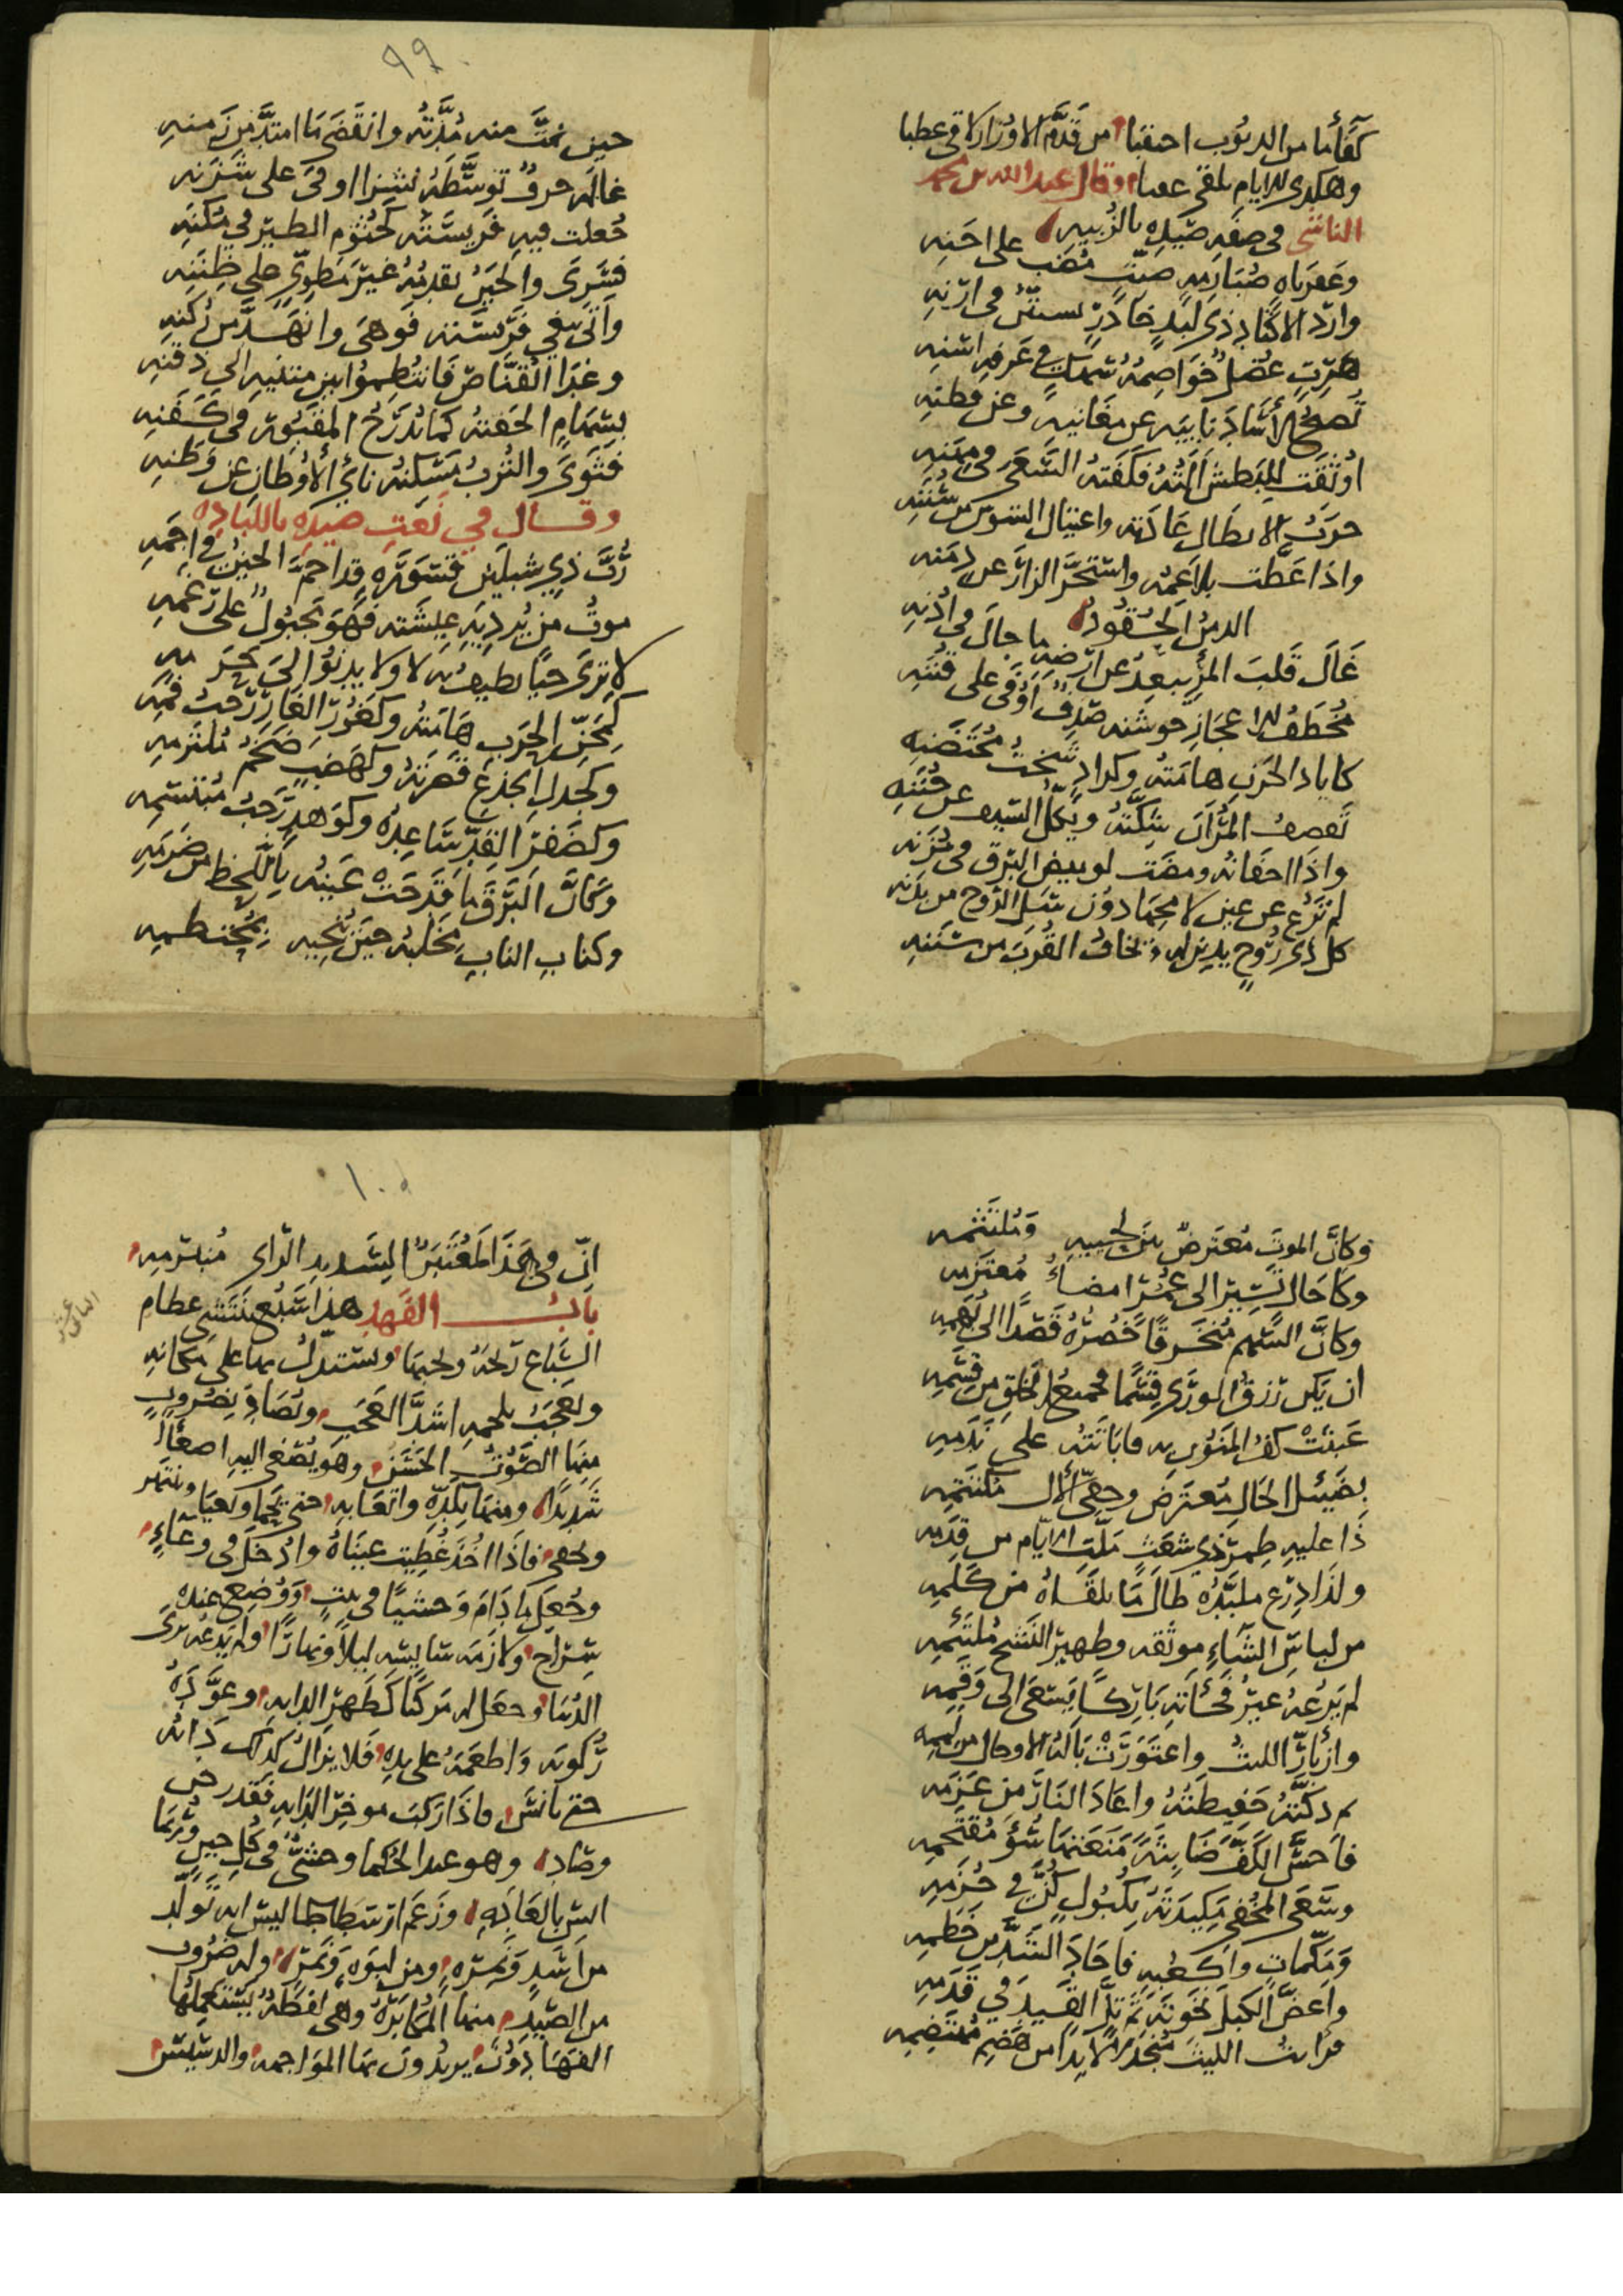 كفأما من الذنوب احتقبا من قدم الاوزار لاقى عطبا
وهكذى الايام يلقى عقبا وقال عبد الله بن محمد
الناشي في صفة صيده بالزبيه على احنه
وعفرناه ضبارمه
وارد الاكتاد ذي لبد خادر في ارنه
هرت عضل في عرفه اشنه
عن مغانيه وعن وطنه
اوثقت للبطش آلته فكفته السعي في مهنه
حرب الابطال عادته واغتيال الشوس من سننه
واذا غطت بلاعمه واستحر الزار عن دمنه
الدمن الحقود ما جال في اذنه
غال قلب المرء يبعد عن ارضه اوفى على قننه
مخطف الاعجاز حوشنه
هامته وكراد شخت محتضنه
تعصف المران شكته ويكل السيف عن جننه
واذا احفانه ومضت لو بيض البرق في مزنه
لم تزع عن عين لامحها دون شل الروح من بدنه
كل ذي روح يدين له ويخاف القرب من سننه
٩٩
حين تمت منه مدته وانقضى ما امتد من زمنه
غاله حرف توسطه نشزا اوفى على شزنه
جعلت فيه فريسته كجثوم الطير في وكنه
فسرى والحين يقدمه غير مطوي على ظننه
واتى يبغي فريسته فوهى وانهد من ركنه
وغدا القناص فانتظموا بين متنيه الى ذقنه
بسهام الحفته كما يدرج المقبور في كفنه
فثوى والترب مسكنه نائي الاوطان عن وطنه
وقال في نعت صيده باللباده
رب ذي شبلين قسوره قد احم الحين في اجمه
موت من يرديه عيشته فهو مجبول على زعمه
لا ترى حيا يطيف به لا ولا يدنو الى حرمه
كمجن الحرب هامته وكغور الغار رحب فمه
وكجدل الجذع قصرته وكهضب ضخم ملتزمه
وكضفر القد ساعده وكوهد رحب مبتسمه
وكأن البرق ما قدحت عينه باللحظ من ضرمه
وكناب الناب مخلبه حين تحييه بمختطمه
وكأن الموت معترض بين لحييه وملتثمه
وكاحال تشير الى عمر امضاء معتزمه
وكأن السهم منخرقا خصره قصدا الى لهمه
ان يكن رزق الورى قسما فجميع الخلق من قسمه
عبثت كف المنون به فأباتته على ندمه
بضئيل الحال معترض وخفي الال مكتتمه
ذا عليه طمر ذي شعث ملت الايام من قدمه
ولذا درع ملبده طال ما يلقاه من كلمه
من لباس الشاء موثقه وظهير النسج ملتئمه
لم يرعه غير فجأته باركا يسعى الى وقمه
وازبأر الليث واعتورت بالنا الاوحال من لممه
ثم ذكته حفيظته واعاد النار من عزمه
فاحس الكف ضابثة منعتها سوء مقتحمه
وسعى المخفي مكيدته بكبول كن في حزمه
ومكمات واكعبه فاجاد الشد من خطمه
واعض الكبل نخوته ثم تل القيد في قدمه
فرايت الليث منجدلا بدا من هضيم مهتضمه
١٠٠
ان في هذا لمعتبرا لسديد الراى مبترمه
باب الفهد هذا سبع تشتهي عظام
السباع ريحه ولحمها ويستدل بها على مكانه
ويعجب بلحمه اشد العجب ويصاد بضروب
منها الصوت الحسن وهو يصغي اليه اصغاءً
شديدا ومنها بكده واتعابه حتى يحما ويعيا وينبهر
ويحفى فاذا اخذ غطيت عيناه وادخل في وعاء
وجعل ما دام وحشيا في بيت ووضع عنده
سراج ولازمه سايسه ليلا ونهارا ولم يدعه يرى
الدنيا وجعل له مركبا كظهر الدابه وعوده
ركوبه واطعمه على يده فلا يزال كذلك دابه
حتى يانس فاذا ركب موخر الدابه فقد رض
وصاد وهو عند الحكما وحشي في كل حين وربما
انس بالعاده وزعم ارسطاطاليس انه تولد
من اسد ونمره ومن لبوه ونمر وله ضروب
من الصيد منها المكابره وهي لفظة يستعملها
الفهادون يريدون بها المواجهه والدسيس
الثاني عشر